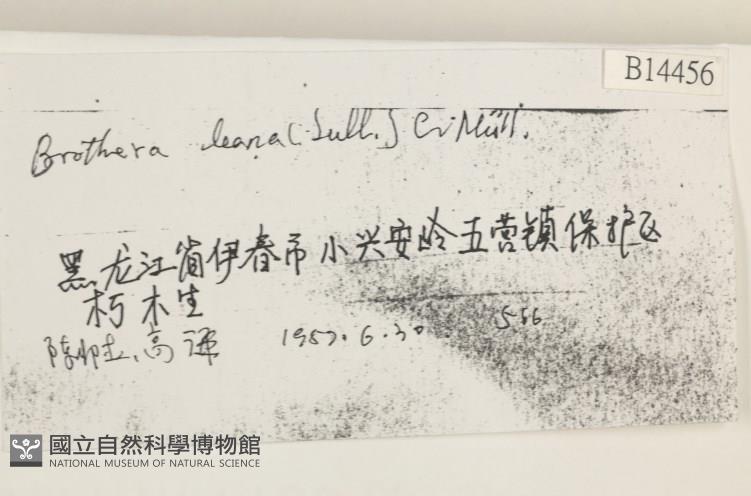 B14456
Brothera leana (Sull.) C. Müll.
黑龙江省伊春市小兴安岭五营镇保护区
朽木生
陈 高谦 1987.6.30 566
國立自然科學博物館
NATIONAL MUSEUM OF NATURAL SCIENCE